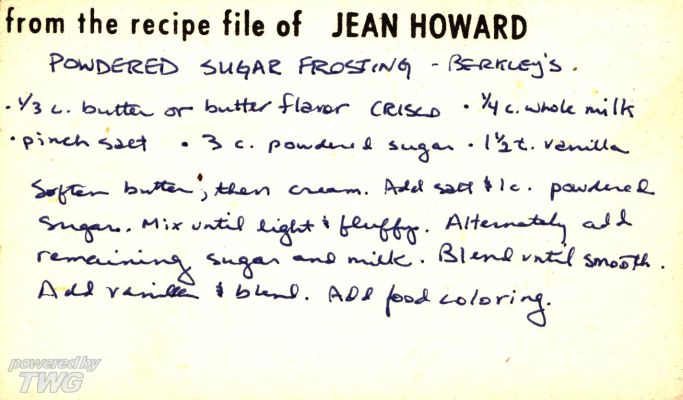 from the recipe file of JEAN HOWARD
POWDERED SUGAR FROSTING - BERKLEY'S.
· 1/3 c. butter or butter flavor CRISCO · 1/4 c. whole milk
· pinch salt · 3 c. powdered sugar · 1 1/2 t. vanilla
Soften butter, then cream. Add salt & 1 c. powdered
sugar. Mix until light & fluffy. Alternately add
remaining sugar and milk. Blend until smooth.
Add vanilla & blend. Add food coloring.
powered by
TWG